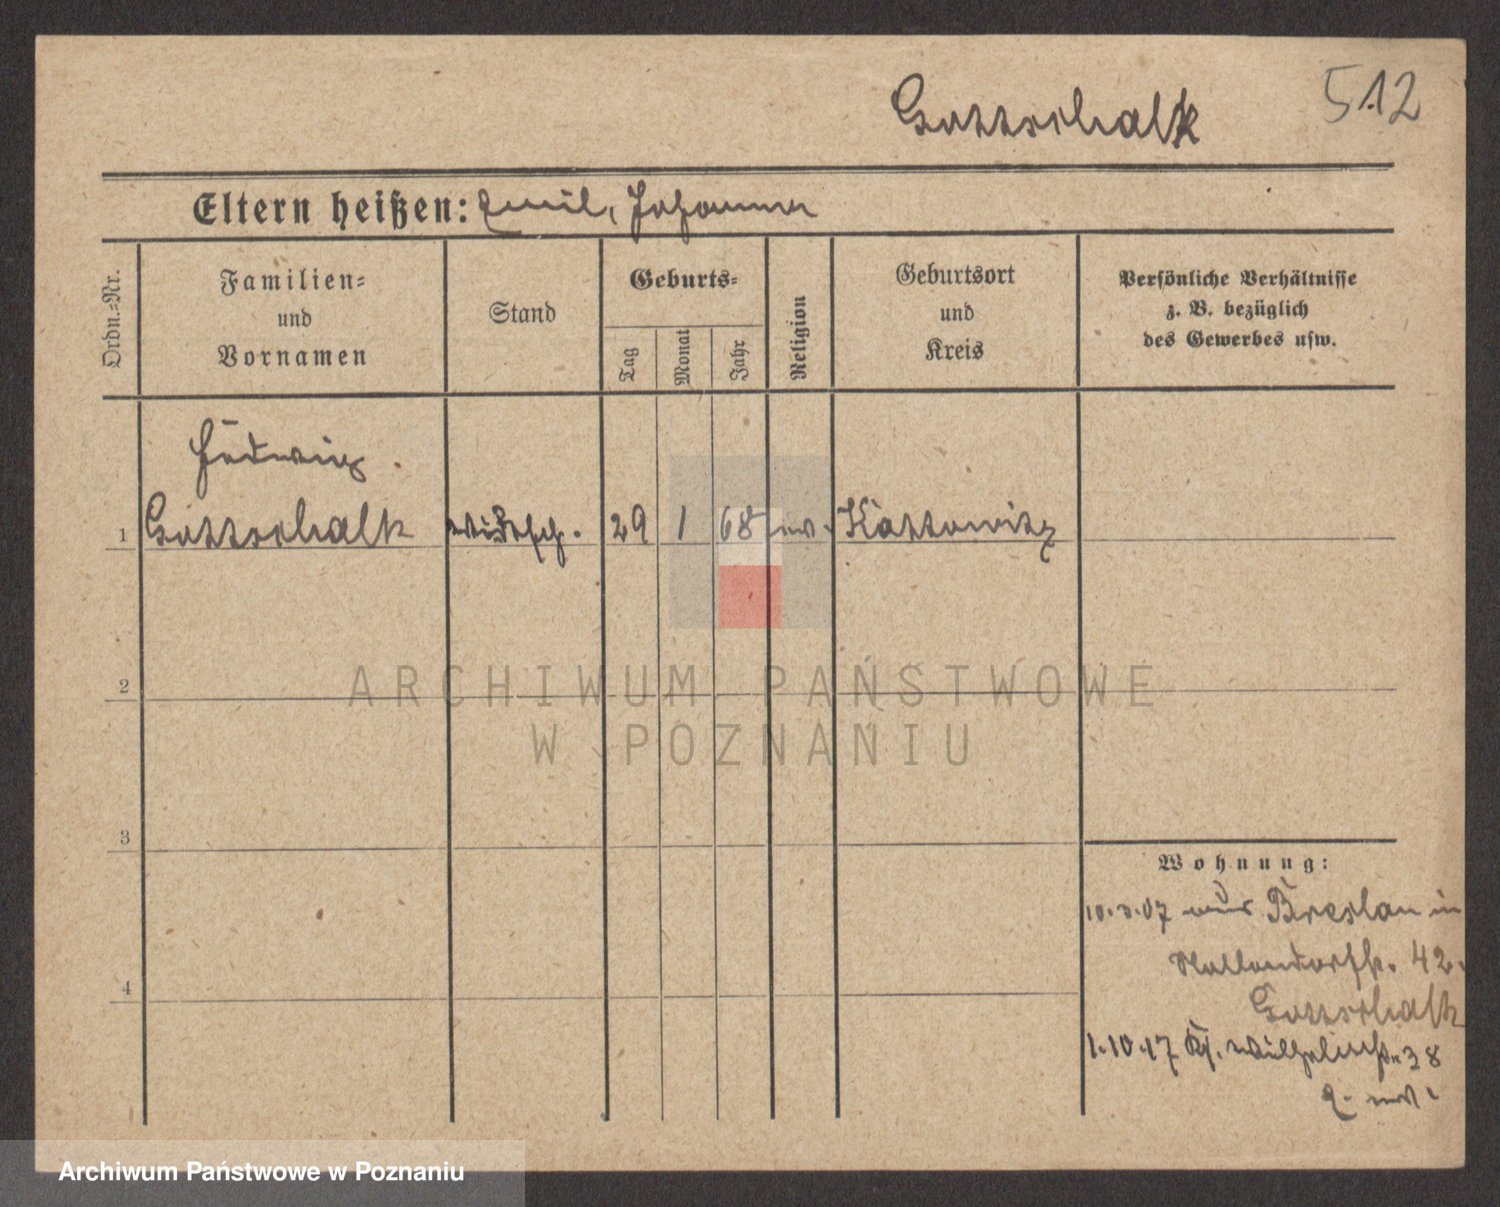 Gottschalk
512
Eltern heißen: Emil, Johanna
Ordn.=Nr.
Familien=
und
Vornamen
Stand
Geburts=
Tag
Monat
Jahr
Religion
Geburtsort
und
Kreis
Persönliche Verhältnisse
z. B. bezüglich
des Gewerbes usw.
Hedwig
1 Gottschalk 29 1 68 ev. Kattowitz
2
ARCHIWUM PAŃSTWOWE
W POZNANIU
3
Wohnung:
10.3.07 aus Breslau in
42.
4
Gottschalk
1.10.17 Wilhelmstr. 38
Archiwum Państwowe w Poznaniu